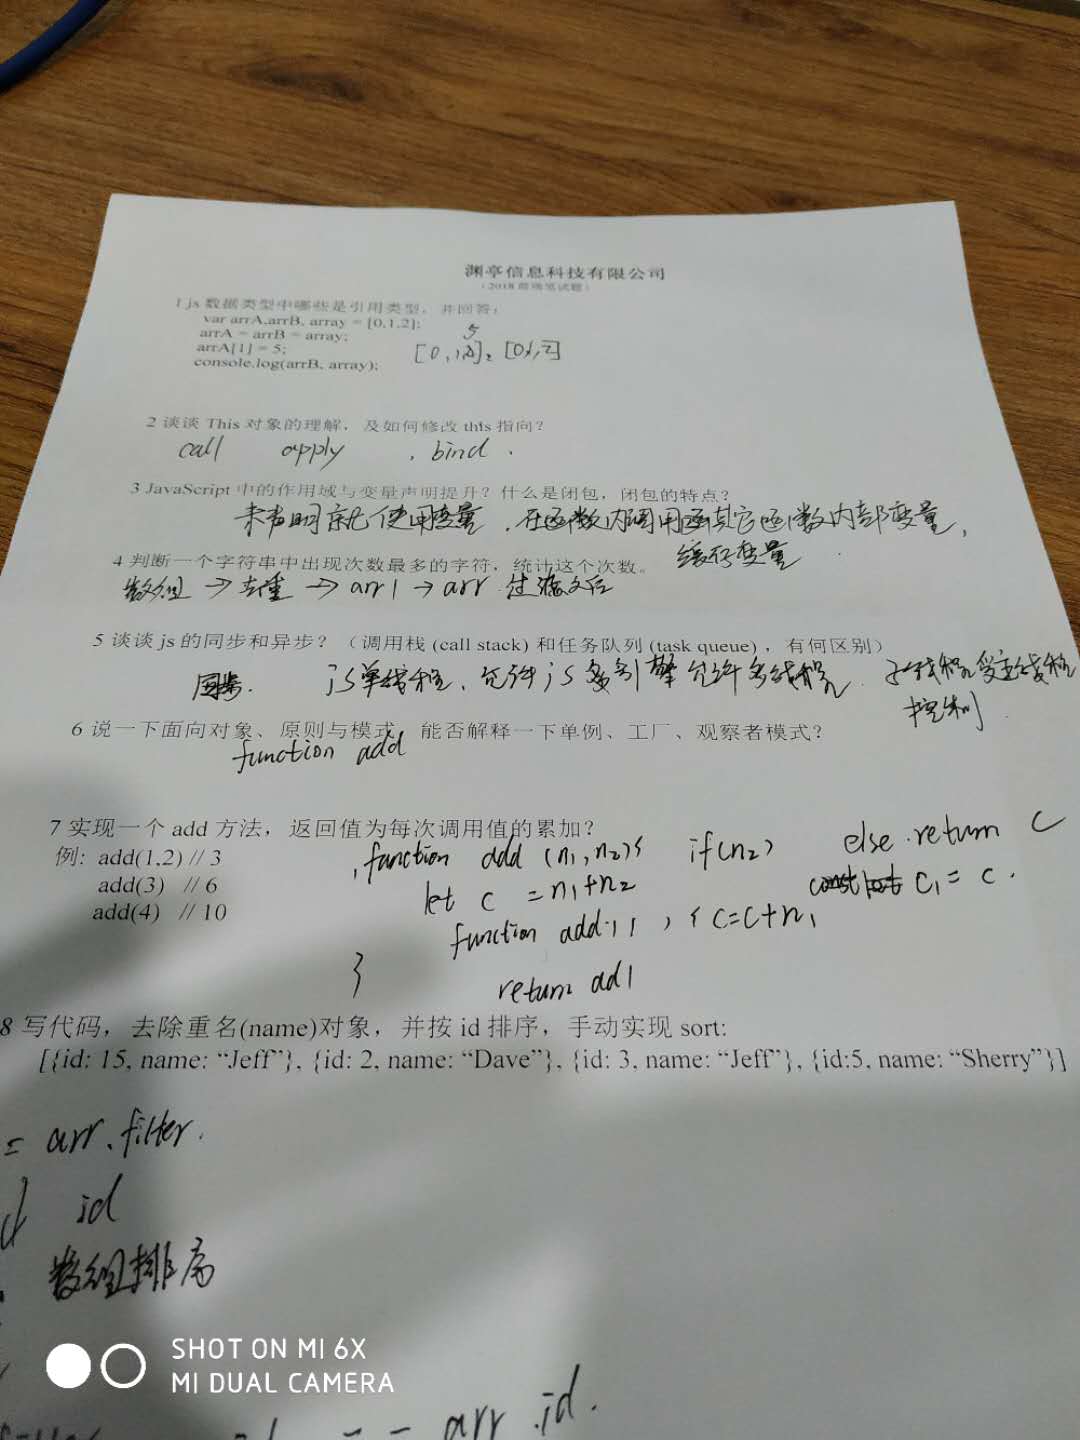 渊亭信息科技有限公司
(2018前端笔试题)
1 js 数据类型中哪些是引用类型，并回答：
var arrA,arrB, array = [0,1,2];
arrA = arrB = array;
arrA[1] = 5;
console.log(arrB, array);
5
2 谈谈 This 对象的理解，及如何修改 this 指向？
call apply . bind .
3 JavaScript 中的作用域与变量声明提升？什么是闭包，闭包的特点？
未声明就使用变量 . 在函数内调用函其它函数内部变量，
缓存变量
4 判断一个字符串中出现次数最多的字符，统计这个次数。
数组 → 去重 → arr1 → arr 过滤
5 谈谈 js 的同步和异步？（调用栈 (call stack) 和任务队列 (task queue) ，有何区别）
js单线程、允许js 引擎允许多线程 . 子线程受主线程
控制
6 说一下面向对象、原则与模式，能否解释一下单例、工厂、观察者模式？
function add
7 实现一个 add 方法，返回值为每次调用值的累加？
例: add(1,2) // 3
add(3) // 6
add(4) // 10
function add (n1, n2) { if(n2) else return C
let c = n1+n2 C1 = C .
function add ) { C=C+n1
} return ad1
8 写代码，去除重名(name)对象，并按 id 排序，手动实现 sort:
[{id: 15, name: “Jeff”}, {id: 2, name: “Dave”}, {id: 3, name: “Jeff”}, {id:5, name: “Sherry”}]
= arr.filter.
id
数组排序
SHOT ON MI 6X
MI DUAL CAMERA
arr .id.